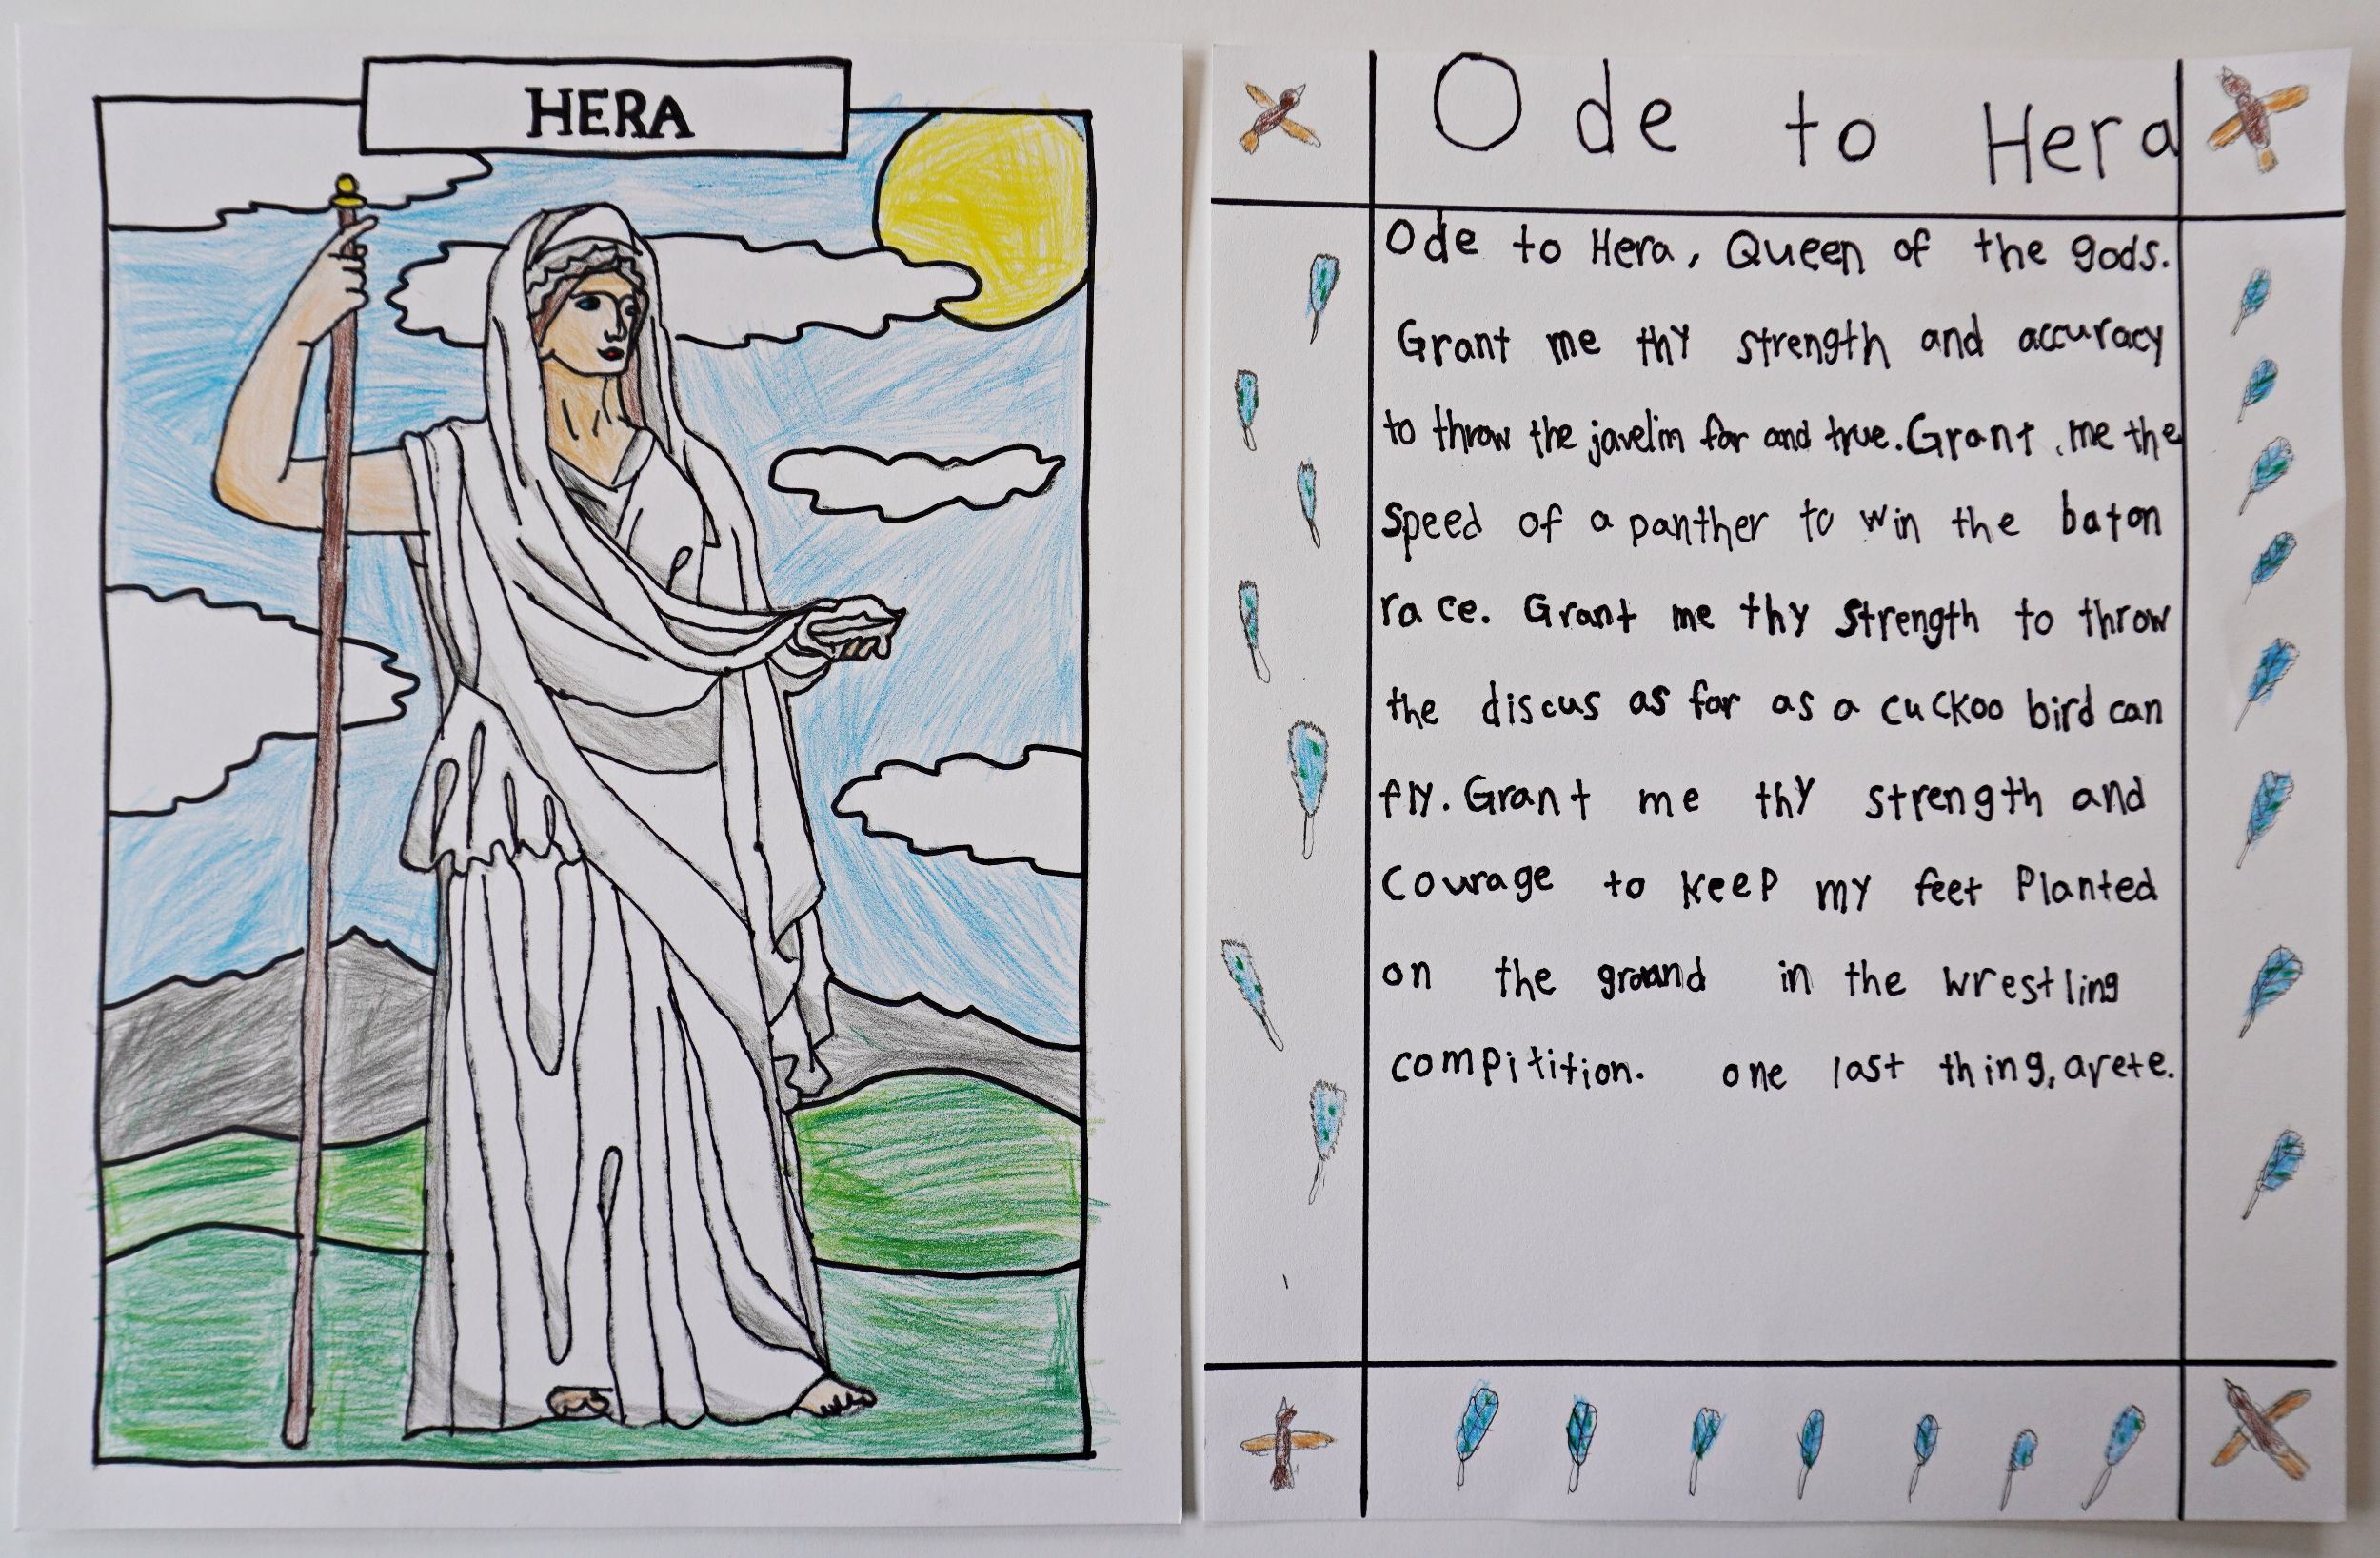 HERA
Ode to Hera
Ode to Hera, Queen of the gods.
Grant me thy strength and accuracy
to throw the javelin far and true. Grant me the
speed of a panther to win the baton
race. Grant me thy strength to throw
the discus as far as a cuckoo bird can
fly. Grant me thy strength and
Courage to keep my feet planted
on the ground in the wrestling
compitition. one last thing, arete.